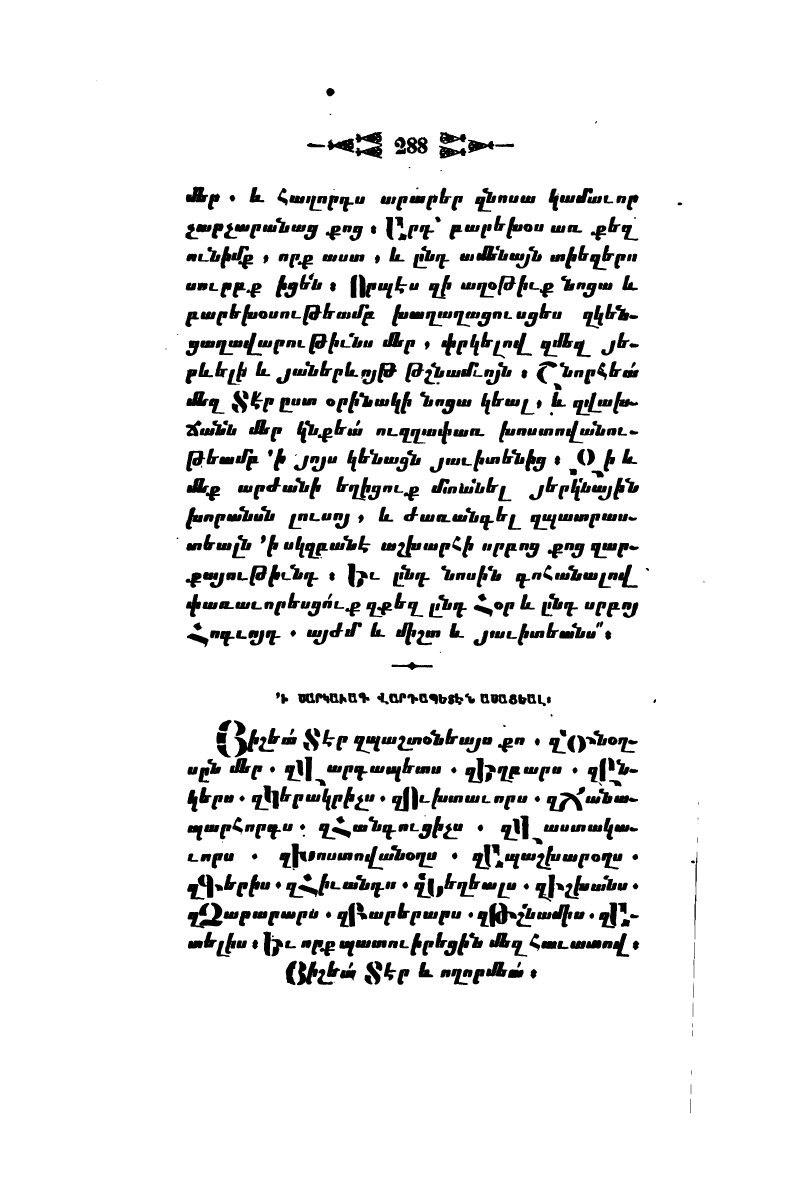 288
մեր . և Հաղորդս արարեր զնոսա կամաւոր
չարչարանաց քոց ։ Արդ՝ բարեխօս առ քեզ
ունիմք , որք աստ , և ընդ ամենայն տիեզերս
սուրբք իցեն ։ Որպէս զի աղօթիւք նոցա և
բարեխօսութեամբ խաղաղացուսցես զկեն-
ցաղավարութիւնս մեր , փրկելով զմեզ յե-
րևելի և յաներևոյթ թշնամւոյն ։ Շնորհեա՛
մեզ Տէր ըստ օրինակի նոցա կեալ , և զվախ-
ճանն մեր կնքեա՛ ուղղափառ խոստովանու-
թեամբ ՚ի յոյս կենացն յաւիտենից ։ Զի և
մեք արժանի եղիցուք մտանել յերկնային
խորանսն լուսոյ , և ժառանգել զպատրաս-
տեալն ՚ի սկզբանէ աշխարհի սրբոց քոց զար-
քայութիւնդ ։ Եւ ընդ նոսին գոհանալով
փառաւորեսցո՛ւք զքեզ ընդ Հօր և ընդ սրբոյ
Հոգւոյդ . այժմ և միշտ և յաւիտեանս՟ ։
՚Ի ՍԱՐԿԱՒԱԳ ՎԱՐԴԱՊԵՏԷՆ ԱՍԱՑԵԱԼ։
Յիշեա՛ Տէր զպաշտօնեայս քո . զԾնօղ-
սըն մեր . զՎարդապետս . զԵղբարս . զԸն-
կերս . զԿերակրիչս . զՈւխտաւորս . զՃանա-
պարհորդս . զՀանգուցիչս . զՎաստակա-
ւորս . զԽոստովանօղս . զԱպաշխարօղս .
զԳերիս . զՀիւանդս . զՆեղեալս . զԻշխանս .
զՉարարարս . զԲարերարս . զԹշնամիս . զԱ-
տելիս ։ Եւ որք պատուիրեցին մեզ Հաւատով ։
Յիշեա՛ Տէր և ողորմեա՛ ։